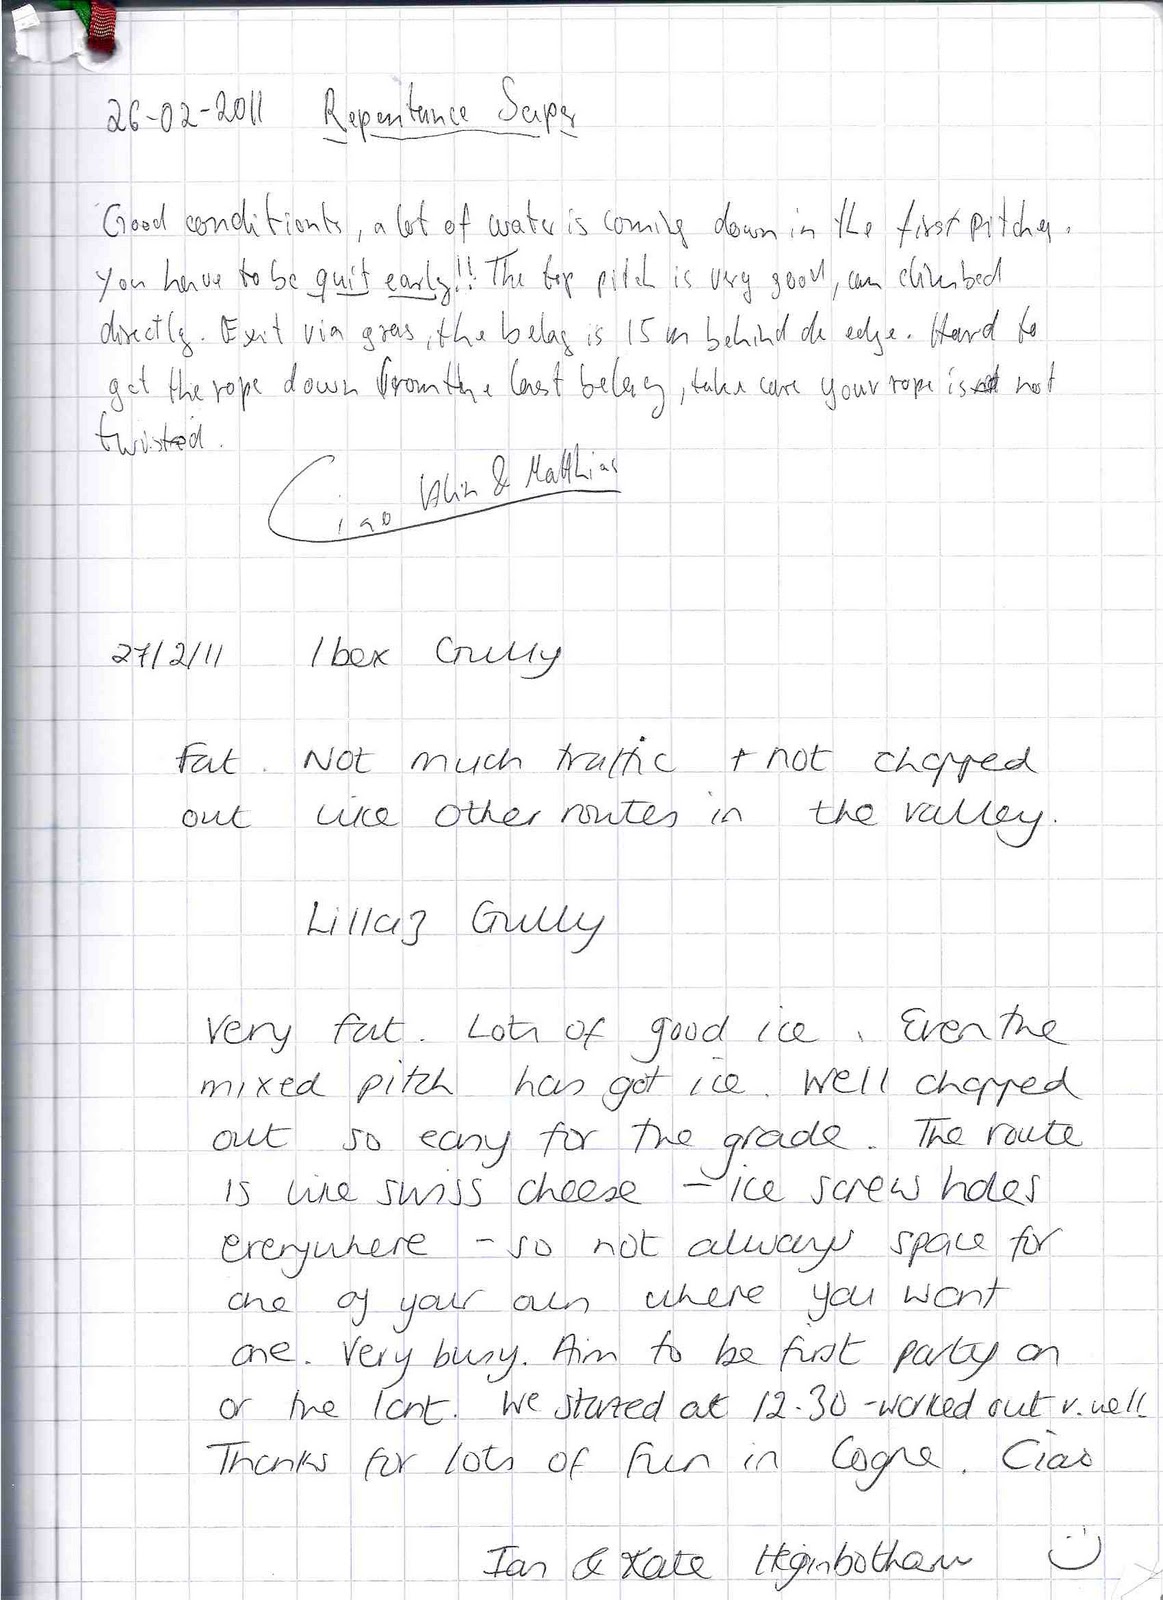 26-02-2011 Repentance Super
Good conditionts, a lot of water is coming down in the first pitches.
you have to be quit early!! The top pitch is very good, can climbed
directly. Exit via gras, the belay is 15 m behind de edge. Hard to
get the rope down from the last belay, take care your rope is not
twisted.
Ciao & Matthias
27/2/11 Ibex Gully
Fat. Not much traffic + not chopped
out like other routes in the valley.
Lillaz Gully
Very fat. Lots of good ice. Even the
mixed pitch has got ice. Well chopped
out so easy for the grade. The route
is like swiss cheese - ice screw holes
everywhere - so not always space for
one of your own where you want
one. Very busy. Aim to be first party on
or the last. We started at 12.30 - worked out v. well
Thanks for lots of fun in Cogne. Ciao
Ian & Kate Higinbotham